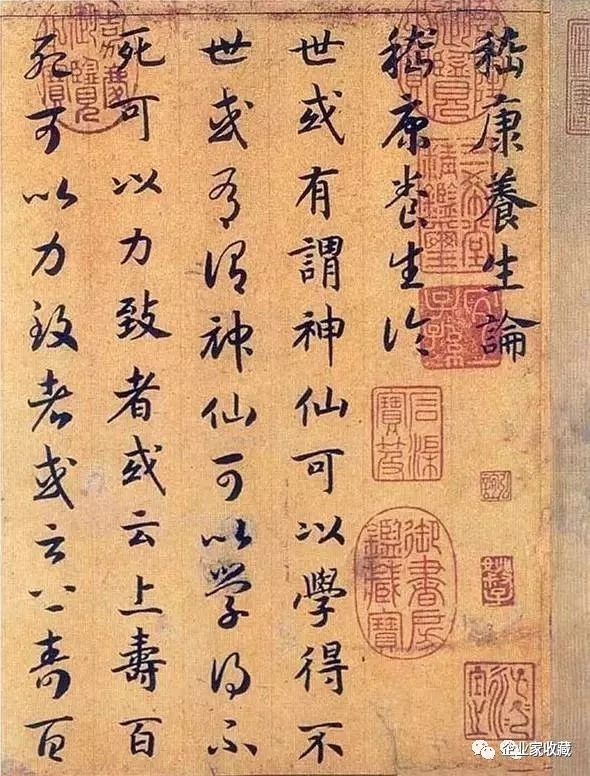 嵇康養生論
嵇康養生論
世或有謂神仙可以學得不
世或有謂神仙可以學得不
死可以力致者或云上壽百
死可以力致者或云上壽百
三希堂精鑑璽
宜子孫
石渠寶笈
御書房鑑藏寶
嘉慶御覽之寶
企业家收藏